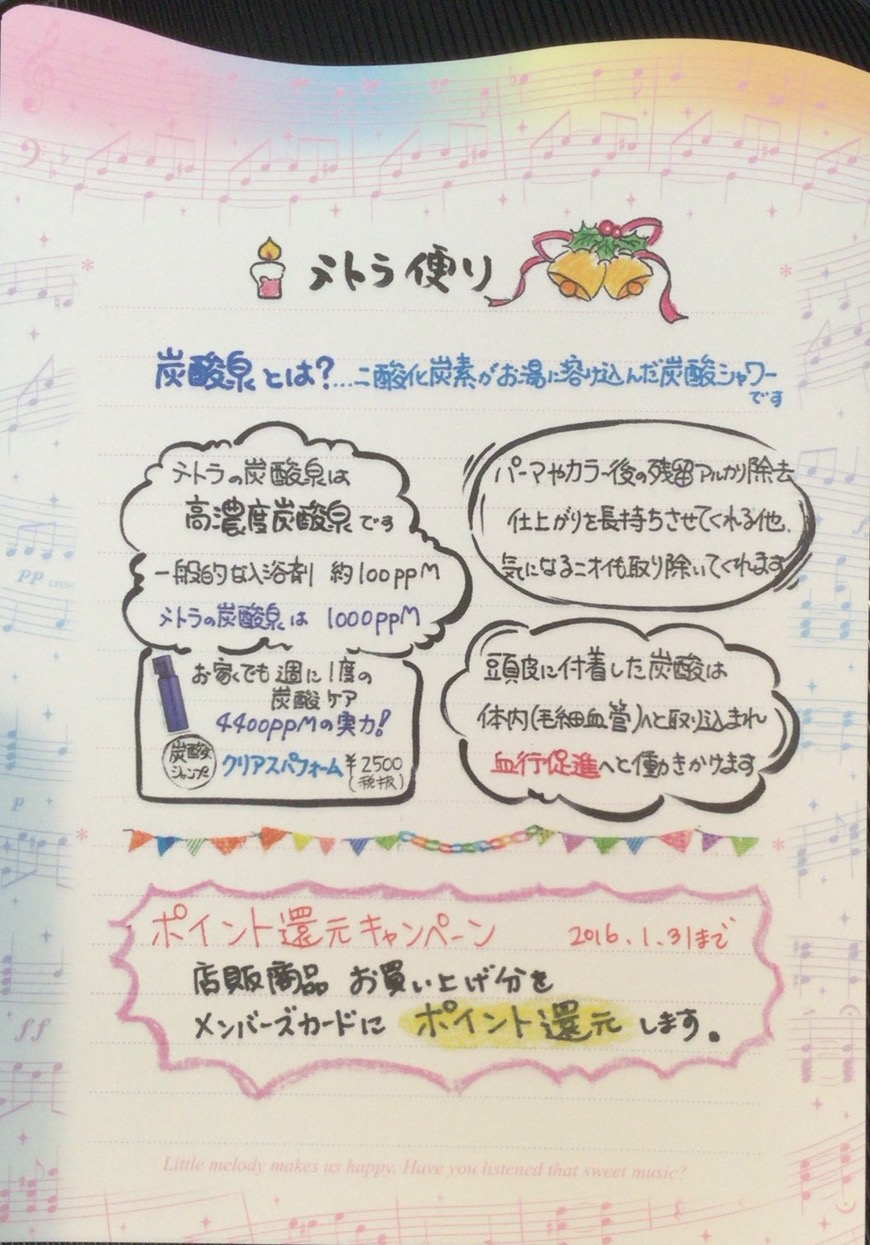 テトラ便り
炭酸泉とは?…二酸化炭素がお湯に溶け込んだ炭酸シャワー
です
テトラの炭酸泉は
高濃度炭酸泉です
一般的な入浴剤 約100ppM
テトラの炭酸泉は 1000ppM
パーマやカラー後の残留アルカリ除去
仕上がりを長持ちさせてくれる他、
気になるニオイも取り除いてくれます
お家でも週に1度の
炭酸ケア
4400ppMの実力!
炭酸
シャンプ
クリアスパフォーム ¥2500
(税抜)
頭皮に付着した炭酸は
体内(毛細血管)へと取り込まれ
血行促進へと働きかけます
ポイント還元キャンペーン 2016.1.31まで
店販商品 お買い上げ分を
メンバーズカードに ポイント還元します。
Little melody makes us happy. Have you listened that sweet music?
pp cresc
p
ff